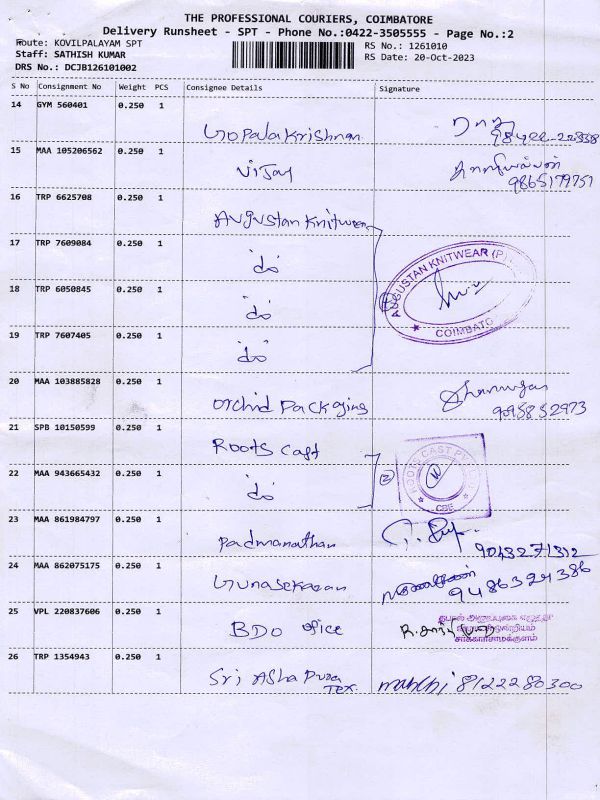 THE PROFESSIONAL COURIERS, COIMBATORE
Delivery Runsheet - SPT - Phone No.:0422-3505555 - Page No.:2
Route: KOVILPALAYAM SPT
RS No.: 1261010
Staff: SATHISH KUMAR
RS Date: 20-Oct-2023
DRS No.: DCJB126101002
S No Consignment No Weight PCS Consignee Details Signature
14 GYM 560401 0.250 1
Gopalakrishnan
15 MAA 105206562 0.250 1
Vijay
9865179751
16 TRP 6625708 0.250 1
Augustan Knitwear
17 TRP 7609084 0.250 1
do
AUGUSTAN KNITWEAR (P)
18 TRP 6050845 0.250 1
do
COIMBATO
19 TRP 7607405 0.250 1
do
20 MAA 103885828 0.250 1
Orchid Packaging
9095852973
21 SPB 10150599 0.250 1
Roots Cast
ROOTS CAST PVT LTD
22 MAA 943665432 0.250 1
do
②
CBE
23 MAA 861984797 0.250 1
Padmanathan
9043271312
24 MAA 862075175 0.250 1
Gunasekaran
9486329386
25 VPL 220837606 0.250 1
BDO office
26 TRP 1354943 0.250 1
Sri Asha Pura
Tex.
8122280300